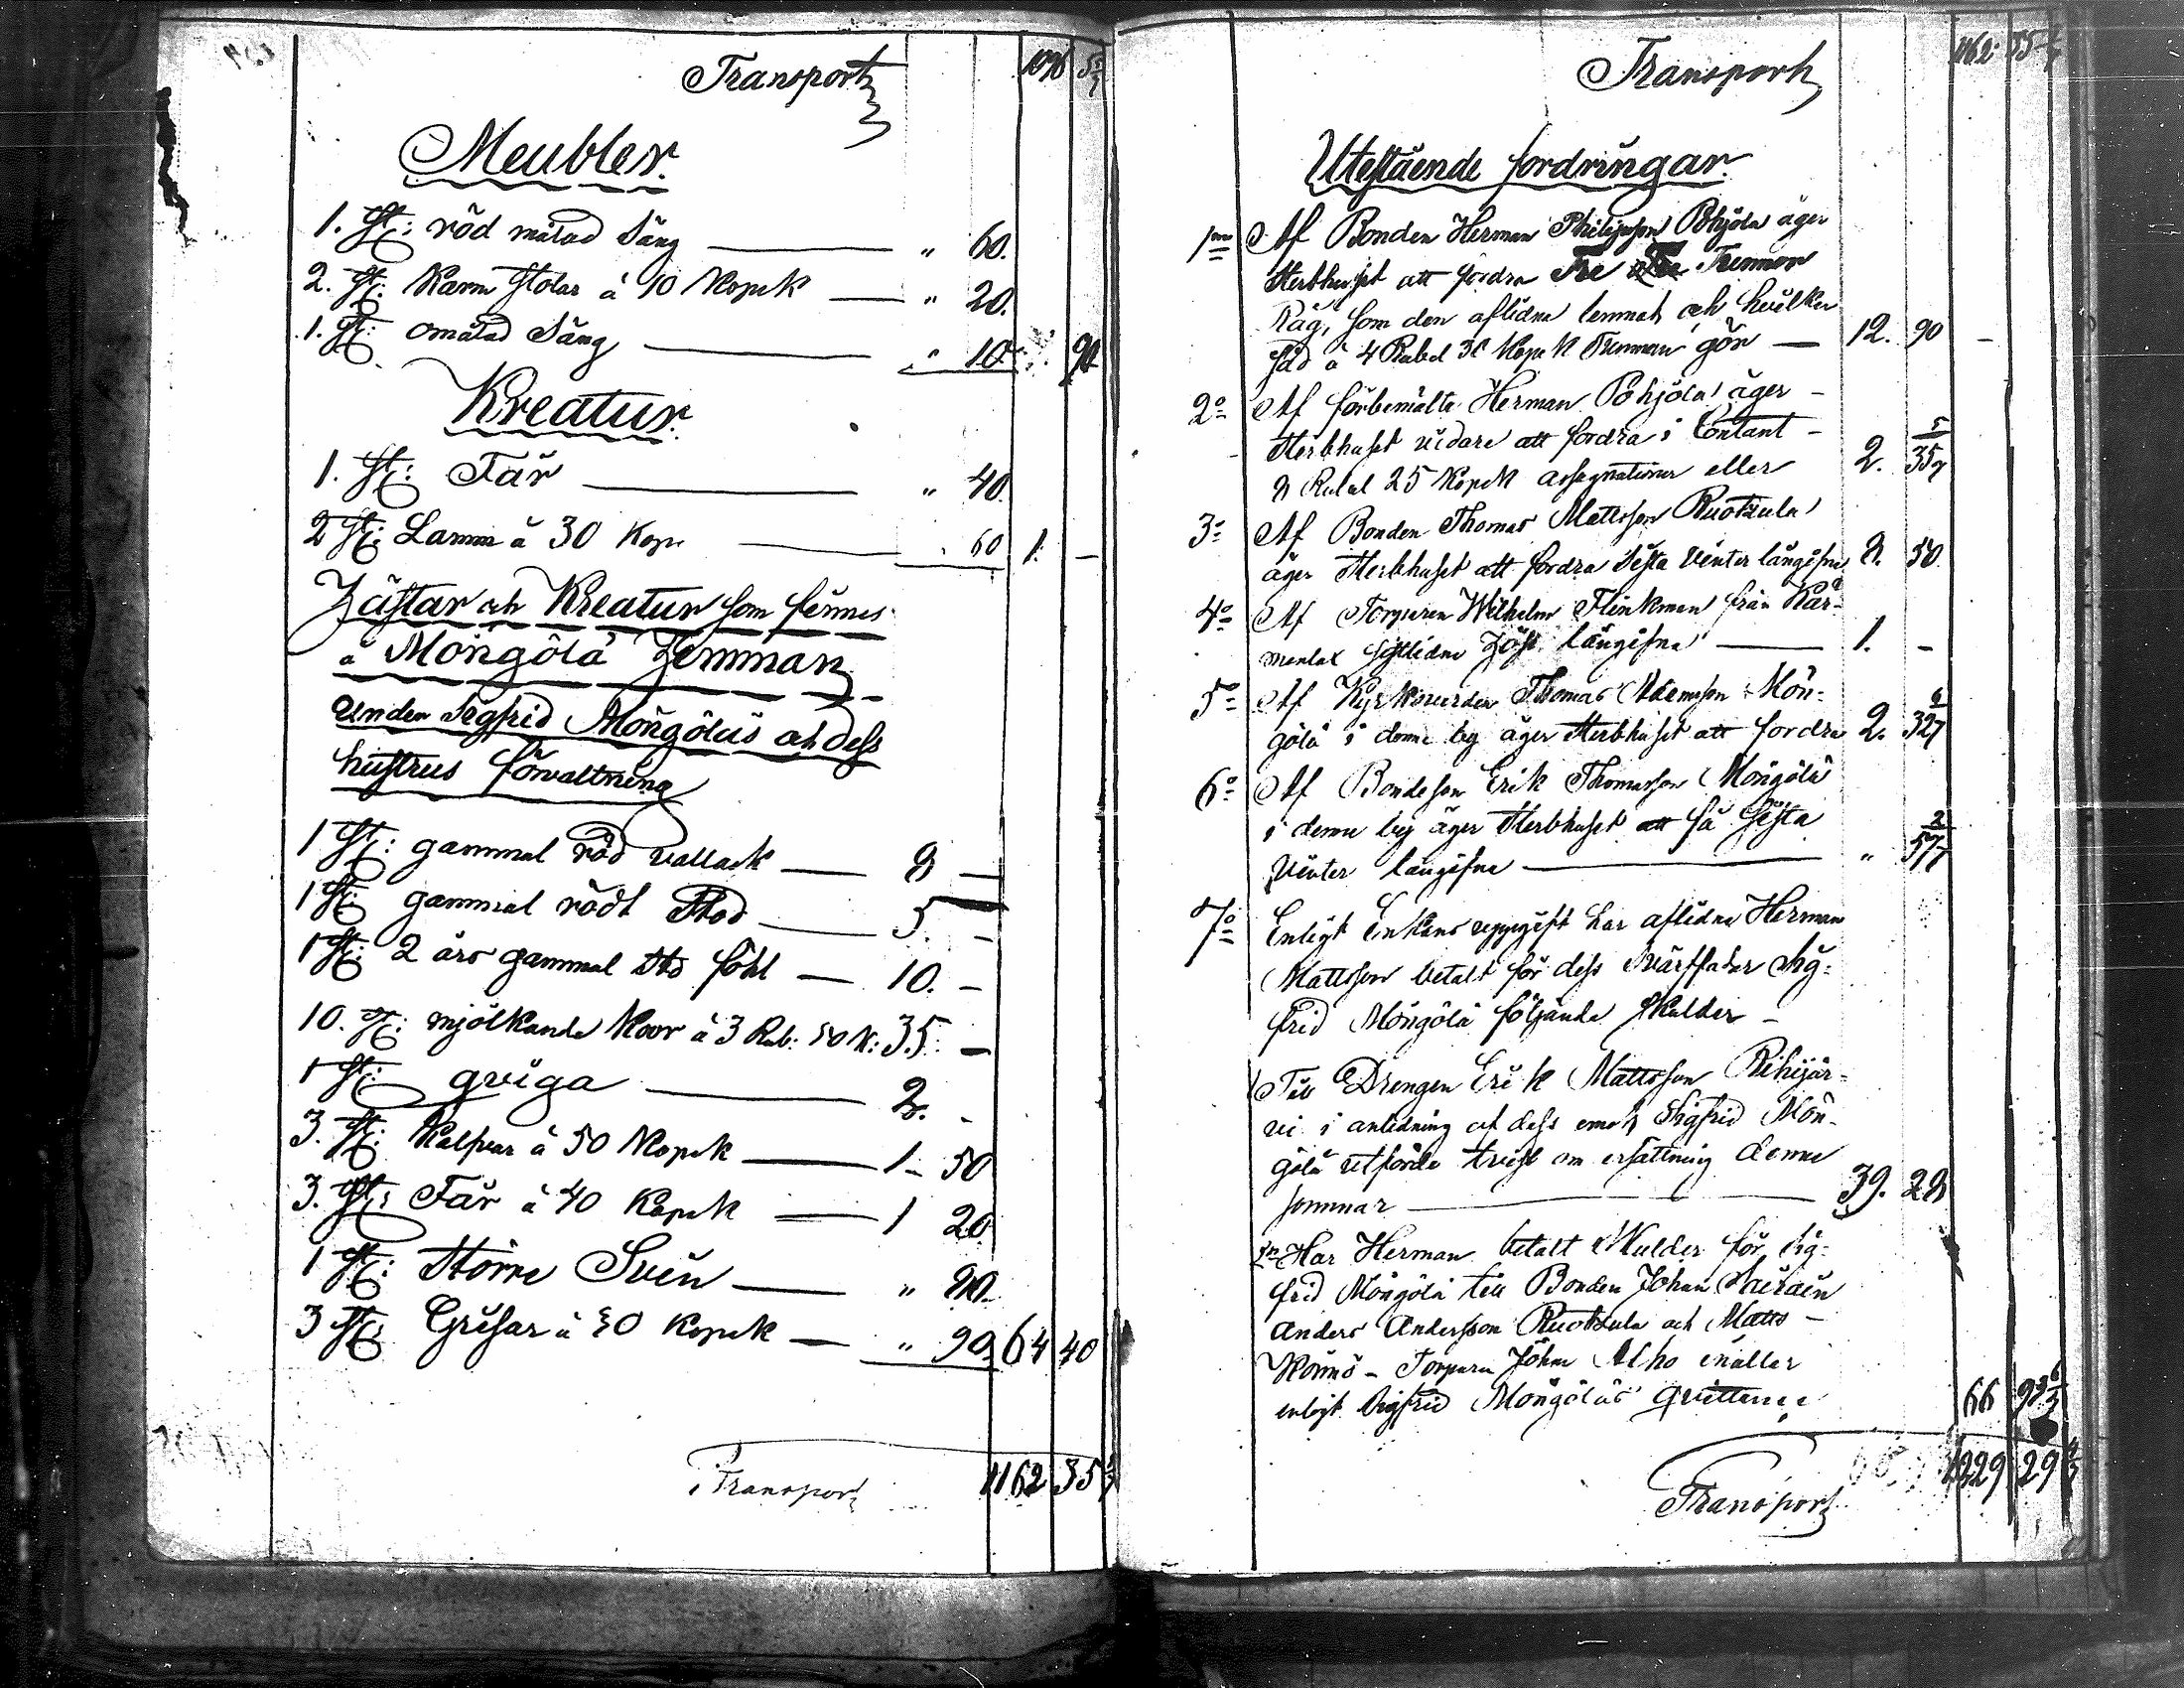 Transport 1096 5 5/7
Meubler.
1. St: röd målad Säng — " 60.
2. St: Karm Stolar à 10 Kopek — " 20.
1. St: omålad Säng — " 10. " 90
Kreatur.
1. St: Får — " 40.
2 St: Lamm à 30 Kop. — " 60 1. —
Hästar och Kreatur som finnes
å Möngölä Hemman
under Sigfrid Möngöläs och dess
hustrus förvaltning
1 St: gammal röd vallack — 8 —
1 St: gammal rödt Stod — 5. —
1 St: 2 års gammal Sto föhl — 10. —
10. St: mjölkande Koor à 3 Rub: 50 K: 35. —
1 St: qviga — 2. —
3. St: Kalfvar à 50 Kopek — 1 — 50
3. St: Får à 40 Kopek — 1 20
1 St: Större Svin — " 80.
3 St: Grisar à 30 Kopek — " 90 64 40
Transport 1162 35 5/7
Transport 1162. 35 5/7
Utestående fordringar.
1mo Af Bonden Herman Philipsson Pohjola äger
Sterbhuset att fordra Tre Tunnor
Råg, som den aflidne lemnat och hvilken
Säd à 4 Rubel 30 Kopek Tunnan gör — 12. 90 —
2o Af förbemälte Herman Pohjola äger —
Sterbhuset vidare att fordra i Contant —
8 Rubel 25 Kopek assignationer eller 2. 35 5/7
3o Af Bonden Thomas Mattsson Ruotzula
äger Sterbhuset att fordra Sista Vinter långifne 8. 50
4o Af Torparen Wilhelm Flinkman från Kär-
menlax sistlidne Höst långifne — 1. —
5o Af Kyrkovärden Thomas Adamsson Mön-
gölä i denne by äger Sterbhuset att fordra 2. 32 6/7
6o Af Bondeson Erik Thomasson Möngölä
i denne by äger Sterbhuset att få Sista
Vinter långifne — " 57 2/7
7o Enligt Enkans uppgift har aflidne Herman
Mattsson betalt för dess Svärfader Sig-
frid Möngölä följande Skulder —
Till Drengen Erik Mattsson Pihjär-
vi i anledning af dess emot Sigfrid Mön-
gölä utförde tvist om ersättning denne
sommar — 39. 28
2n Har Herman betalt Skulder för Sig-
frid Möngölä till Bonden Johan
Anders Andersson Ruotzula och Matts —
Torparen Johan Alho emottar
enligt Sigfrid Möngöläs qvittence 66 93 6/7
1229 29 4/7
Transport